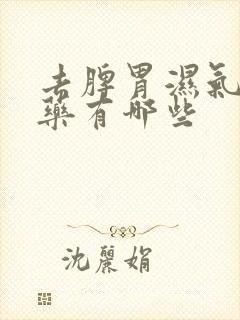 去脾胃濕氣
藥有哪些
沈麗娟